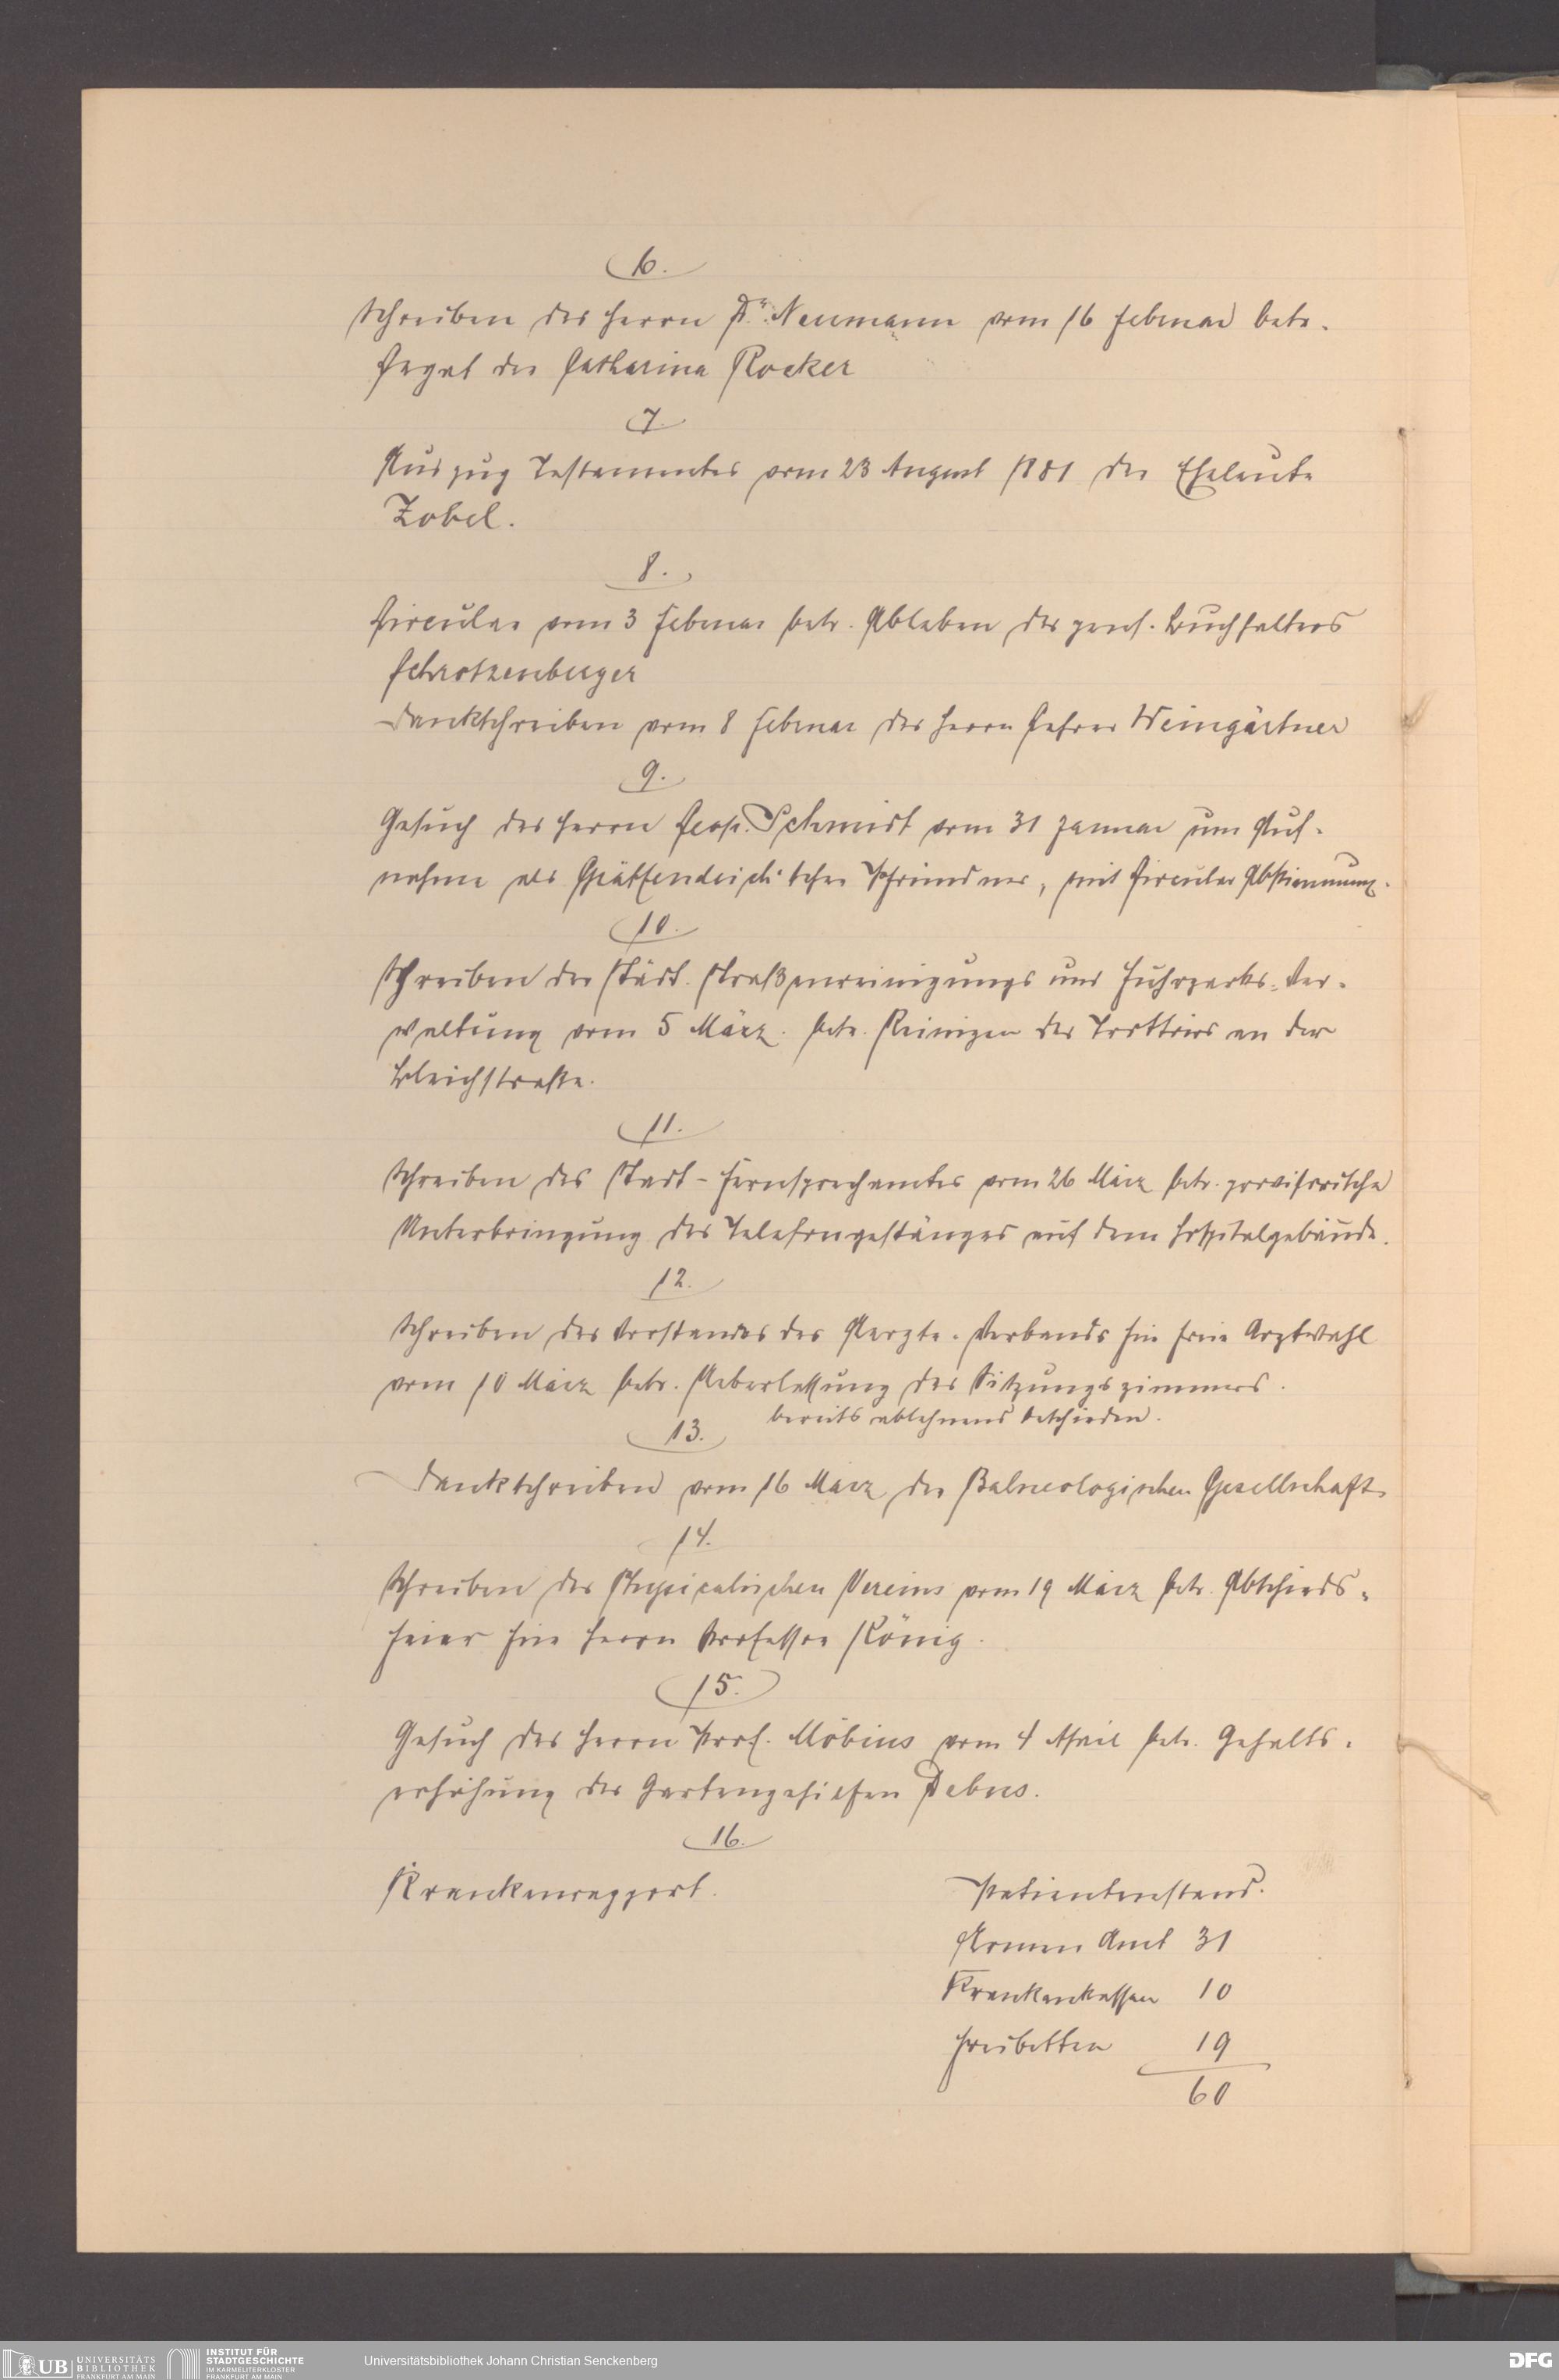 6.
Schreiben des Herrn Dr. Neumann vom 16 Februar betr.
Legat der Catharina Rocker
7.
Auszug Testamentes vom 23 August 1881 der Eheleute
Zobel.
8.
Circular vom 3 Februar betr. Ableben des pens. Buchhalters
Schrotzenberger
Dankschreiben vom 8 Februar des Herrn Lehrer Weingärtner
9.
Gesuch des Herrn Leop. Schmidt vom 31 Januar um Auf-
nahme als Gräffendeich'scher Pfründner, mit Circular Abstimmung.
10.
Schreiben der Städt. Straßenreinigungs und Fuhrparks-Ver-
waltung vom 5 März. betr. Reinigen des Trottoirs an der
Bleichstraße.
11.
Schreiben des Stadt-Fernsprechamtes vom 26 März betr. provisorische
Unterbringung des Telefongestänges auf dem Hospitalgebäude.
12.
Schreiben des Vorstandes des Aerzte-Verbands für freie Arztwahl
vom 10 März betr. Ueberlassung des Sitzungszimmers.
bereits ablehnend beschieden.
13.
Dankschreiben vom 16 März der Balneologischen Gesellschaft
14.
Schreiben des Physicalischen Vereins vom 19 März betr. Abschieds-
feier für Herrn Professor König.
15.
Gesuch des Herrn Prof. Möbius vom 4 April betr. Gehalts-
erhöhung des Gartengehilfen Debus.
16.
Krankenrapport.
Patientenstand.
Armen Amt 31
Krankenkassen 10
Freibetten 19
60
UB UNIVERSITÄTS
BIBLIOTHEK
FRANKFURT AM MAIN
INSTITUT FÜR
STADTGESCHICHTE
IM KARMELITERKLOSTER
FRANKFURT AM MAIN
Universitätsbibliothek Johann Christian Senckenberg
DFG